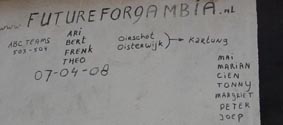 www FUTUREFORGAMBIA.nl
ABC TEAMS
503-504
ARI
BERT
FRENK
THEO
07-04-08
Oirschot
Oisterwijk → Kartong
MAI
MARIAN
CIEN
TONNY
MARGRIET
PETER
JOEP